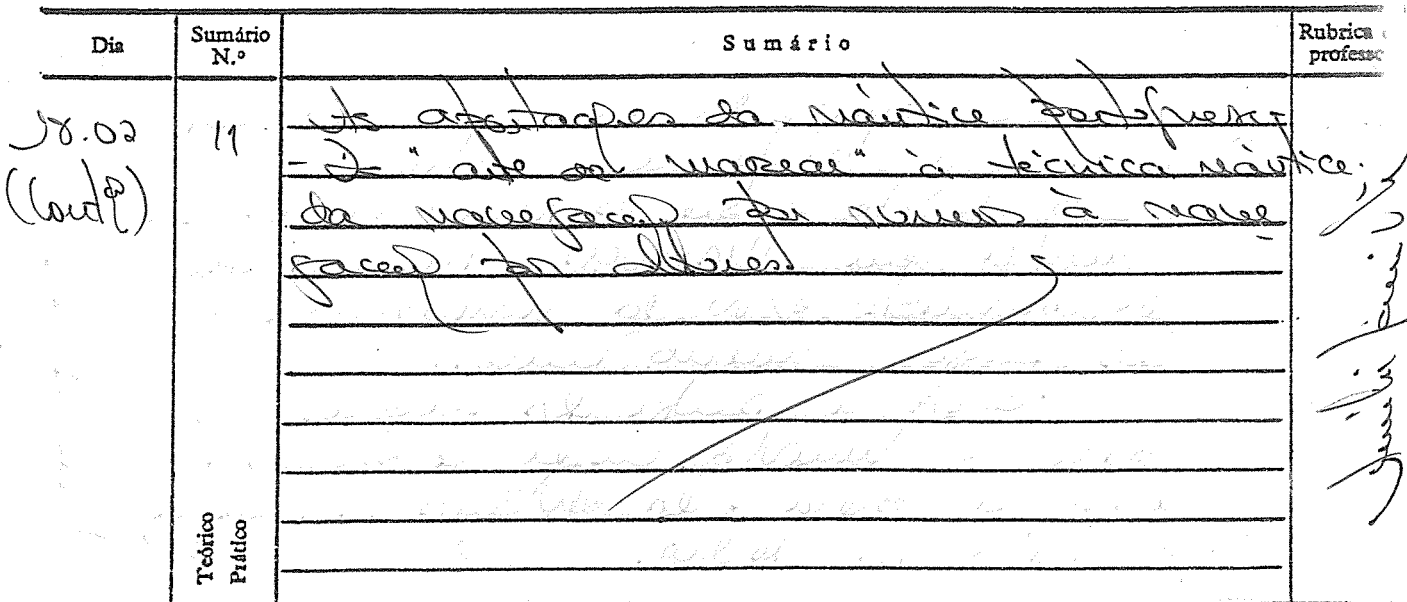 Dia
Sumário N.º
Sumário
Rubrica
professo
11
As adaptações da náutica portuguesa
- "arte de marear" à técnica náutica.
da navegação por rumos à nave-
gação por alturas.
Teórico
Prático